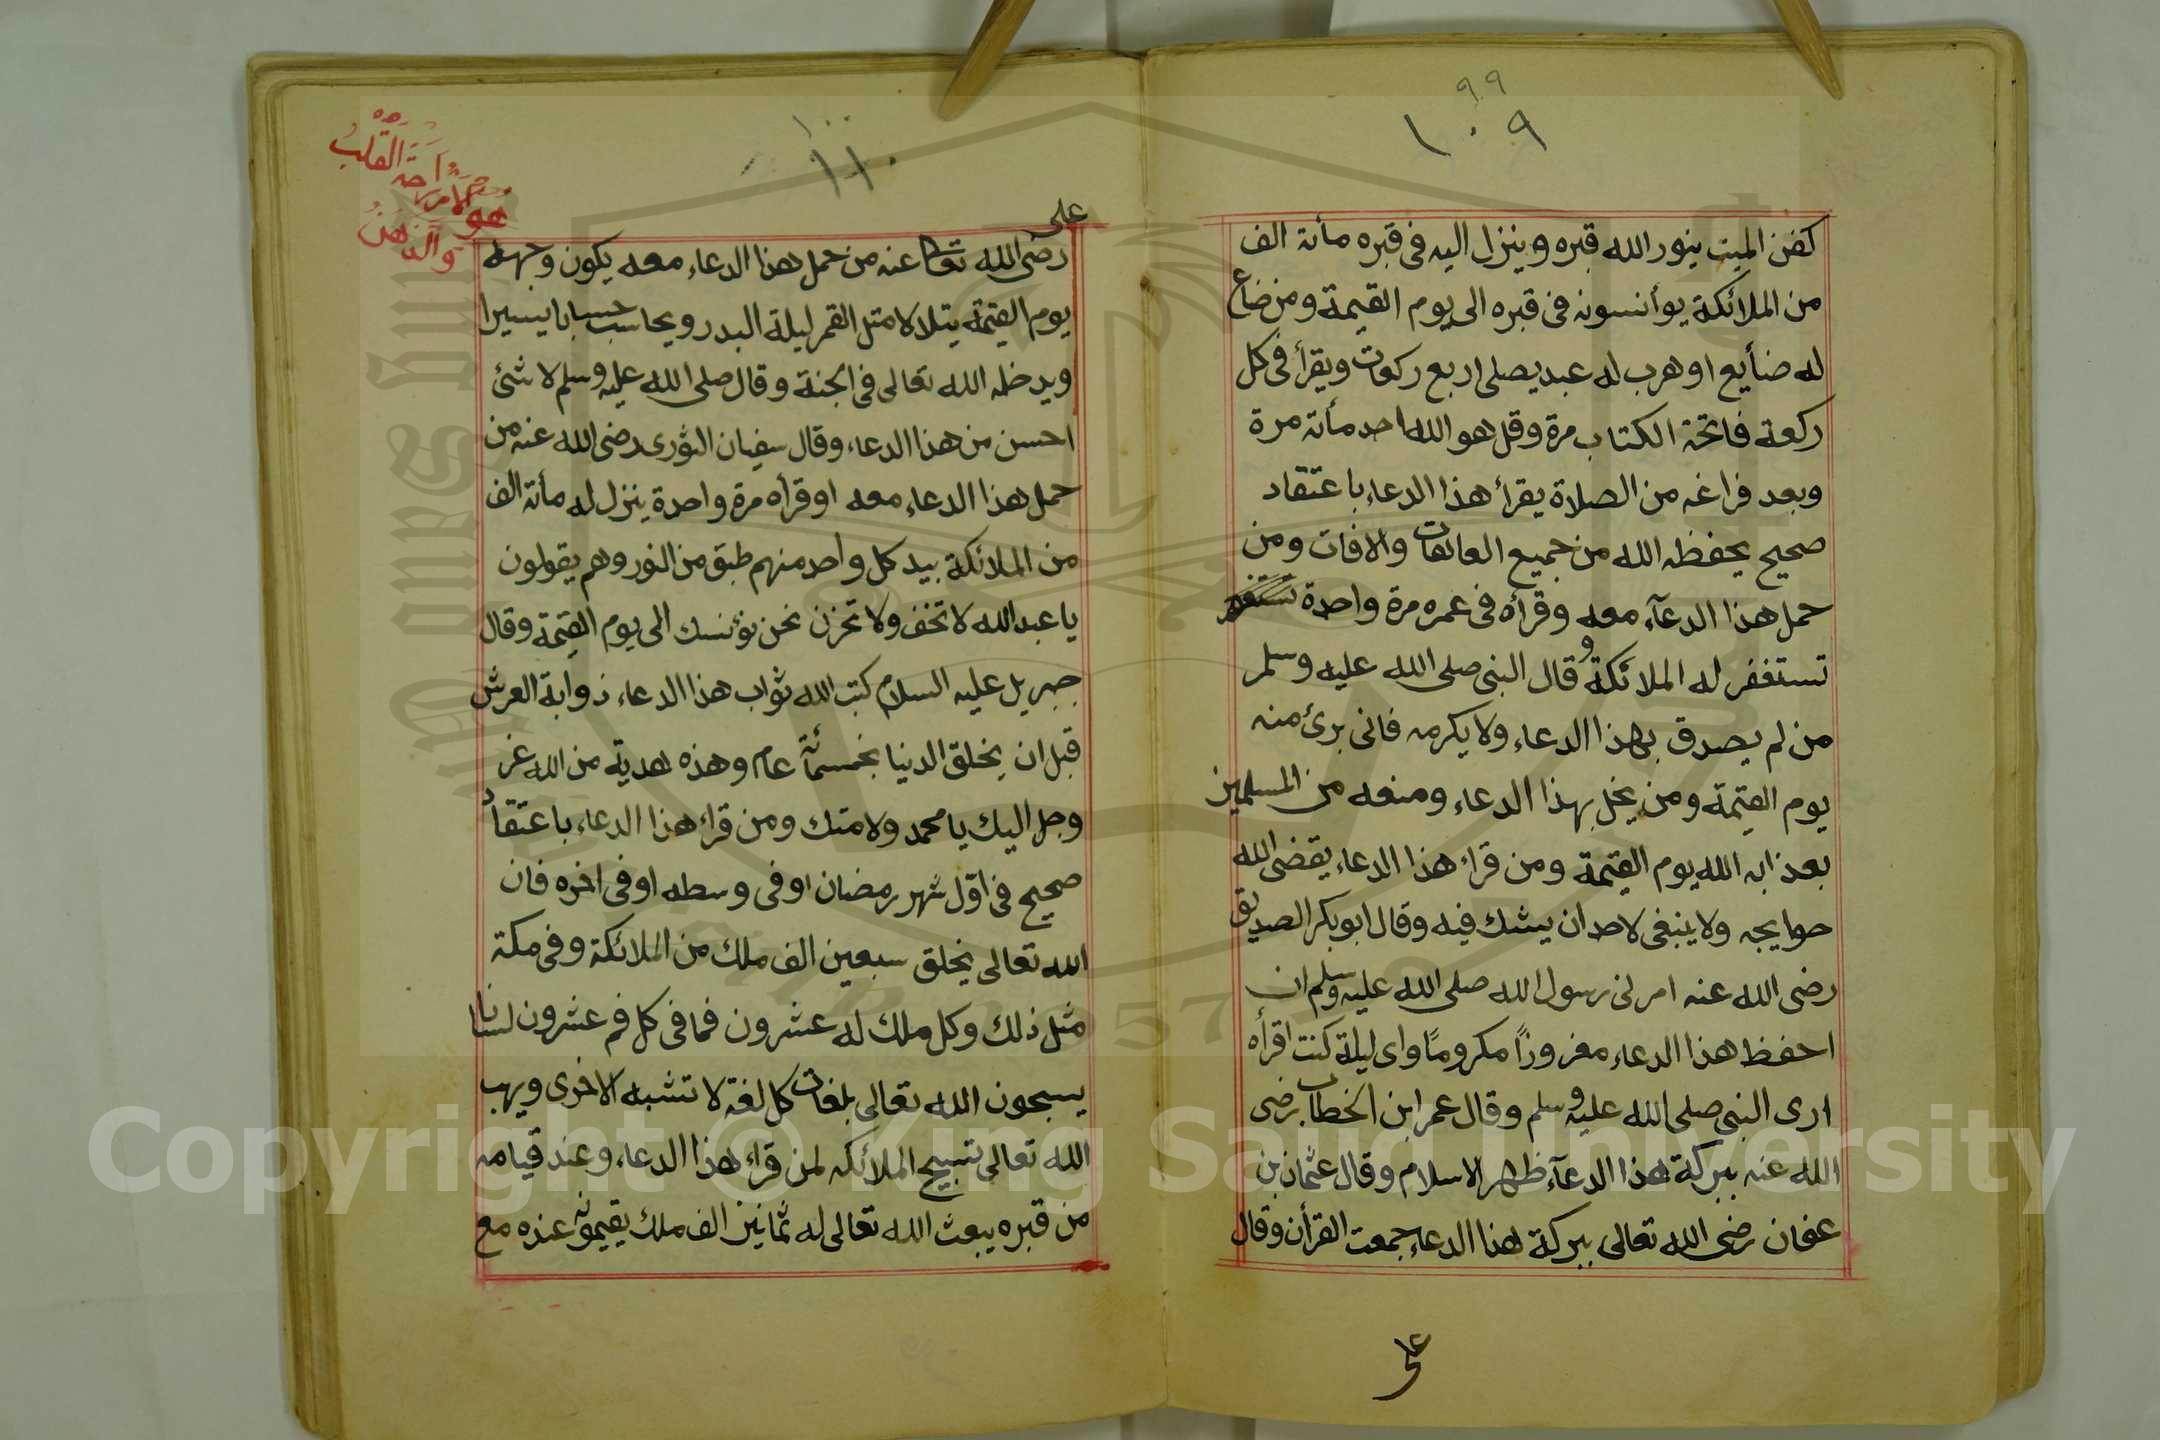 ٩٩
١٠٩
كفن الميت ينور الله قبره وينزل اليه فى قبره مأتة الف
من الملائكة يوأنسونه فى قبره الى يوم القيمة ومن ضاع
له ضأيع او هرب له عبد يصلى اربع ركعات ويقرأ فى كل
ركعة فاتحة الكتاب مرة وقل هو الله احد مأتة مرة
وبعد فراغه من الصلاة يقرأ هذا الدعاء باعتقاد
صحيح يحفظه الله من جميع العاهات والافات ومن
حمل هذا الدعآء معه وقرأه فى عمره مرة واحدة
تستغفر له الملائكة و قال النبى صلى الله عليه وسلم
من لم يصدق بهذا الدعاء ولا يكرمه فانى برئ منه
يوم القيمة ومن يبخل بهذا الدعاء ومنعه من المسلمين
يعذابه الله يوم القيمة ومن قراء هذا الدعاء يقضى الله
حوايجه ولا ينبغى لاحد ان يشك فيه وقال ابو بكر الصديق
رضى الله عنه امرنى رسول الله صلى الله عليه وسلم ان
احفظ هذا الدعاء مغروزًا مكرومًا واى ليلة كنت اقرأه
ارى النبى صلى الله عليه وسلم وقال عمر ابن الخطاب رضى
الله عنه ببركة هذا الدعآء ظهر الاسلام وقال عثمان بن
عفان رضى الله تعالى ببركة هذا الدعاء جمعت القرأن وقال
على
١٠٠
١١٠
القلب
هو
على
رضى الله تعالى عنه من حمل هذا الدعاء معه يكون وجهه
يوم القيمة يتلالا مثل القمر ليلة البدر ويحاسب حسابا يسيرا
ويدخله الله تعالى فى الجنة وقال صلى الله عليه وسلم لا شئ
احسن من هذا الدعاء وقال سفيان الثورى رضى الله عنه من
حمل هذا الدعاء معه او قرأه مرة واحدة ينزل له مأتة الف
من الملائكة بيد كل واحد منهم طبق من النور وهم يقولون
يا عبد الله لا تخف ولا تحزن نحن نؤنسك الى يوم القيمة وقال
جبريل عليه السلام كتب الله ثواب هذا الدعاء ذوابة العرش
قبل ان يخلق الدنيا بخمسمأئة عام وهذه هدية من الله عز
وجل اليك يا محمد ولامتك ومن قراء هذا الدعاء باعتقاد
صحيح فى اوّل شهر رمضان او فى وسطه او فى اخره فان
الله تعالى يخلق سبعين الف ملك من الملائكة وفى مكة
مثل ذلك وكل ملك له عشرون فما فى كل فم عشرون لسانا
يسبحون الله تعالى بلغات كل لغة لا تشبه الاخرى ويهب
الله تعالى تسبيح الملائكه لمن قراء هذا الدعاء وعند قيامه
من قبره يبعث الله تعالى له ثمانين الف ملك يقيمونه عنده مع
Copyright © King Saud University